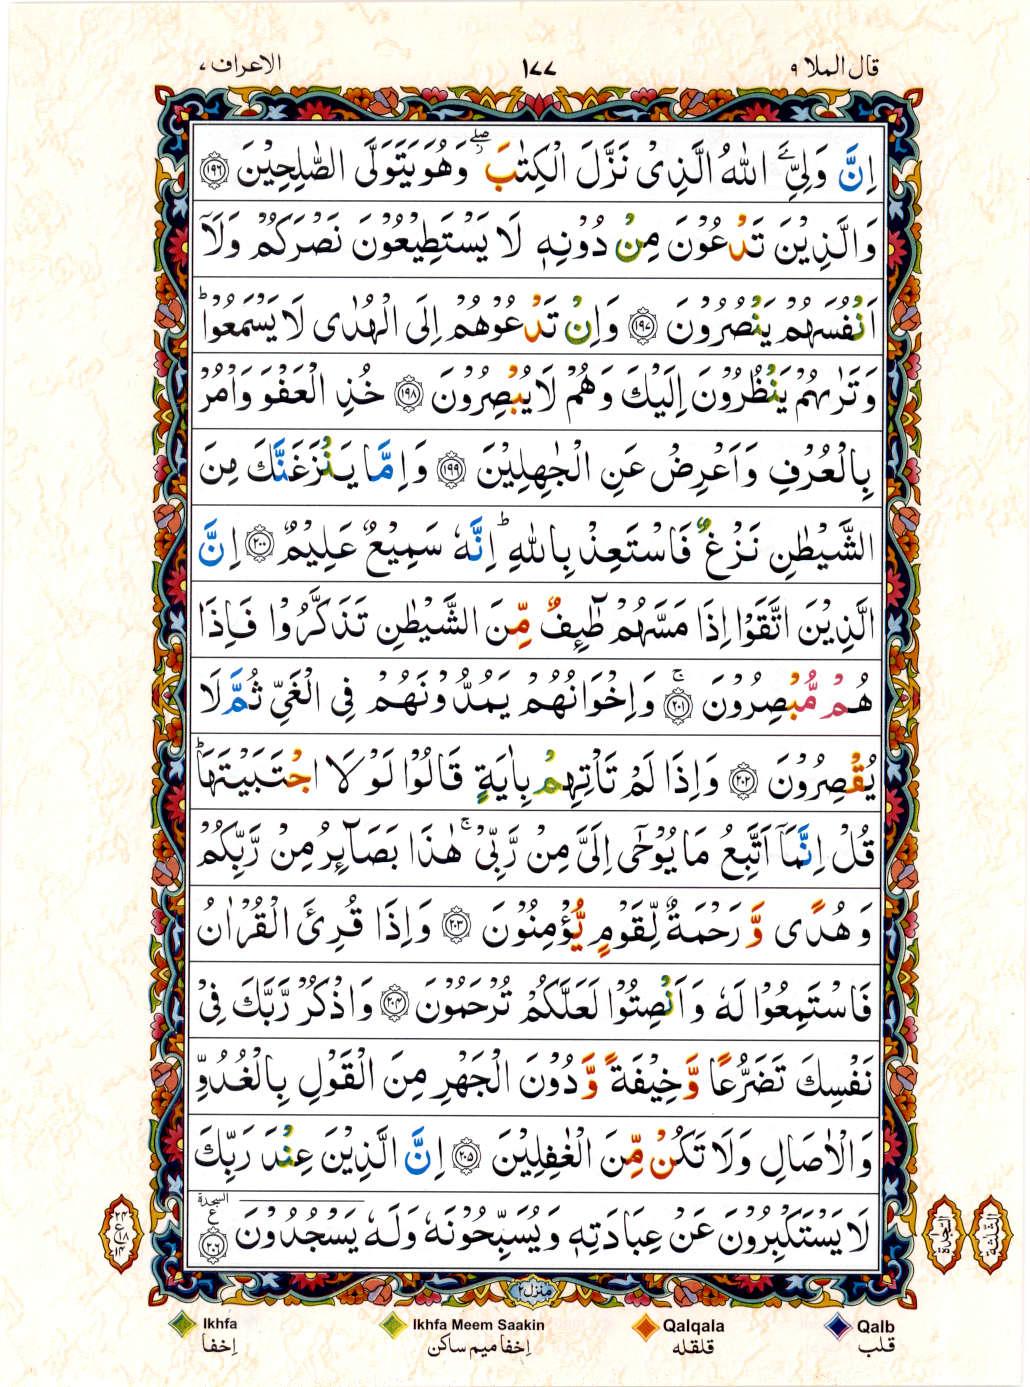 قال الملا ٩
١٧٧
الاعراف ٧
اِنَّ وَلِيِّۦَ اللّٰهُ الَّذِىْ نَزَّلَ الْكِتٰبَ ۖ وَهُوَ يَتَوَلَّى الصّٰلِحِيْنَ ﴿١٩٦﴾
وَالَّذِيْنَ تَدْعُوْنَ مِنْ دُوْنِهٖ لَا يَسْتَطِيْعُوْنَ نَصْرَكُمْ وَلَاۤ
اَنْفُسَهُمْ يَنْصُرُوْنَ ﴿١٩٧﴾ وَاِنْ تَدْعُوْهُمْ اِلَى الْهُدٰى لَا يَسْمَعُوْا ؕ
وَتَرٰىهُمْ يَنْظُرُوْنَ اِلَيْكَ وَهُمْ لَا يُبْصِرُوْنَ ﴿١٩٨﴾ خُذِ الْعَفْوَ وَاْمُرْ
بِالْعُرْفِ وَاَعْرِضْ عَنِ الْجٰهِلِيْنَ ﴿١٩٩﴾ وَاِمَّا يَنْزَغَنَّكَ مِنَ
الشَّيْطٰنِ نَزْغٌ فَاسْتَعِذْ بِاللّٰهِ ؕ اِنَّهٗ سَمِيْعٌ عَلِيْمٌ ﴿٢٠٠﴾ اِنَّ
الَّذِيْنَ اتَّقَوْا اِذَا مَسَّهُمْ طٰٓئِفٌ مِّنَ الشَّيْطٰنِ تَذَكَّرُوْا فَاِذَا
هُمْ مُّبْصِرُوْنَ ۚ ﴿٢٠١﴾ وَاِخْوَانُهُمْ يَمُدُّوْنَهُمْ فِى الْغَىِّ ثُمَّ لَا
يُقْصِرُوْنَ ﴿٢٠٢﴾ وَاِذَا لَمْ تَاْتِهِمْ بِاٰيَةٍ قَالُوْا لَوْلَا اجْتَبَيْتَهَا ؕ
قُلْ اِنَّمَاۤ اَتَّبِعُ مَا يُوْحٰٓى اِلَىَّ مِنْ رَّبِّىْ ۚ هٰذَا بَصَآئِرُ مِنْ رَّبِّكُمْ
وَهُدًى وَّرَحْمَةٌ لِّقَوْمٍ يُّؤْمِنُوْنَ ﴿٢٠٣﴾ وَاِذَا قُرِئَ الْقُرْاٰنُ
فَاسْتَمِعُوْا لَهٗ وَاَنْصِتُوْا لَعَلَّكُمْ تُرْحَمُوْنَ ﴿٢٠٤﴾ وَاذْكُرْ رَّبَّكَ فِىْ
نَفْسِكَ تَضَرُّعًا وَّخِيْفَةً وَّدُوْنَ الْجَهْرِ مِنَ الْقَوْلِ بِالْغُدُوِّ
وَالْاٰصَالِ وَلَا تَكُنْ مِّنَ الْغٰفِلِيْنَ ﴿٢٠٥﴾ اِنَّ الَّذِيْنَ عِنْدَ رَبِّكَ
السجدة
لَا يَسْتَكْبِرُوْنَ عَنْ عِبَادَتِهٖ وَيُسَبِّحُوْنَهٗ وَلَهٗ يَسْجُدُوْنَ ﴿٢٠٦﴾ ع
السَّجْدَة ١
الثلثة
٢٤
ع
١٨
١٤
منزل ٢
Ikhfa
إخفا
Ikhfa Meem Saakin
إخفا ميم ساكن
Qalqala
قلقله
Qalb
قلب